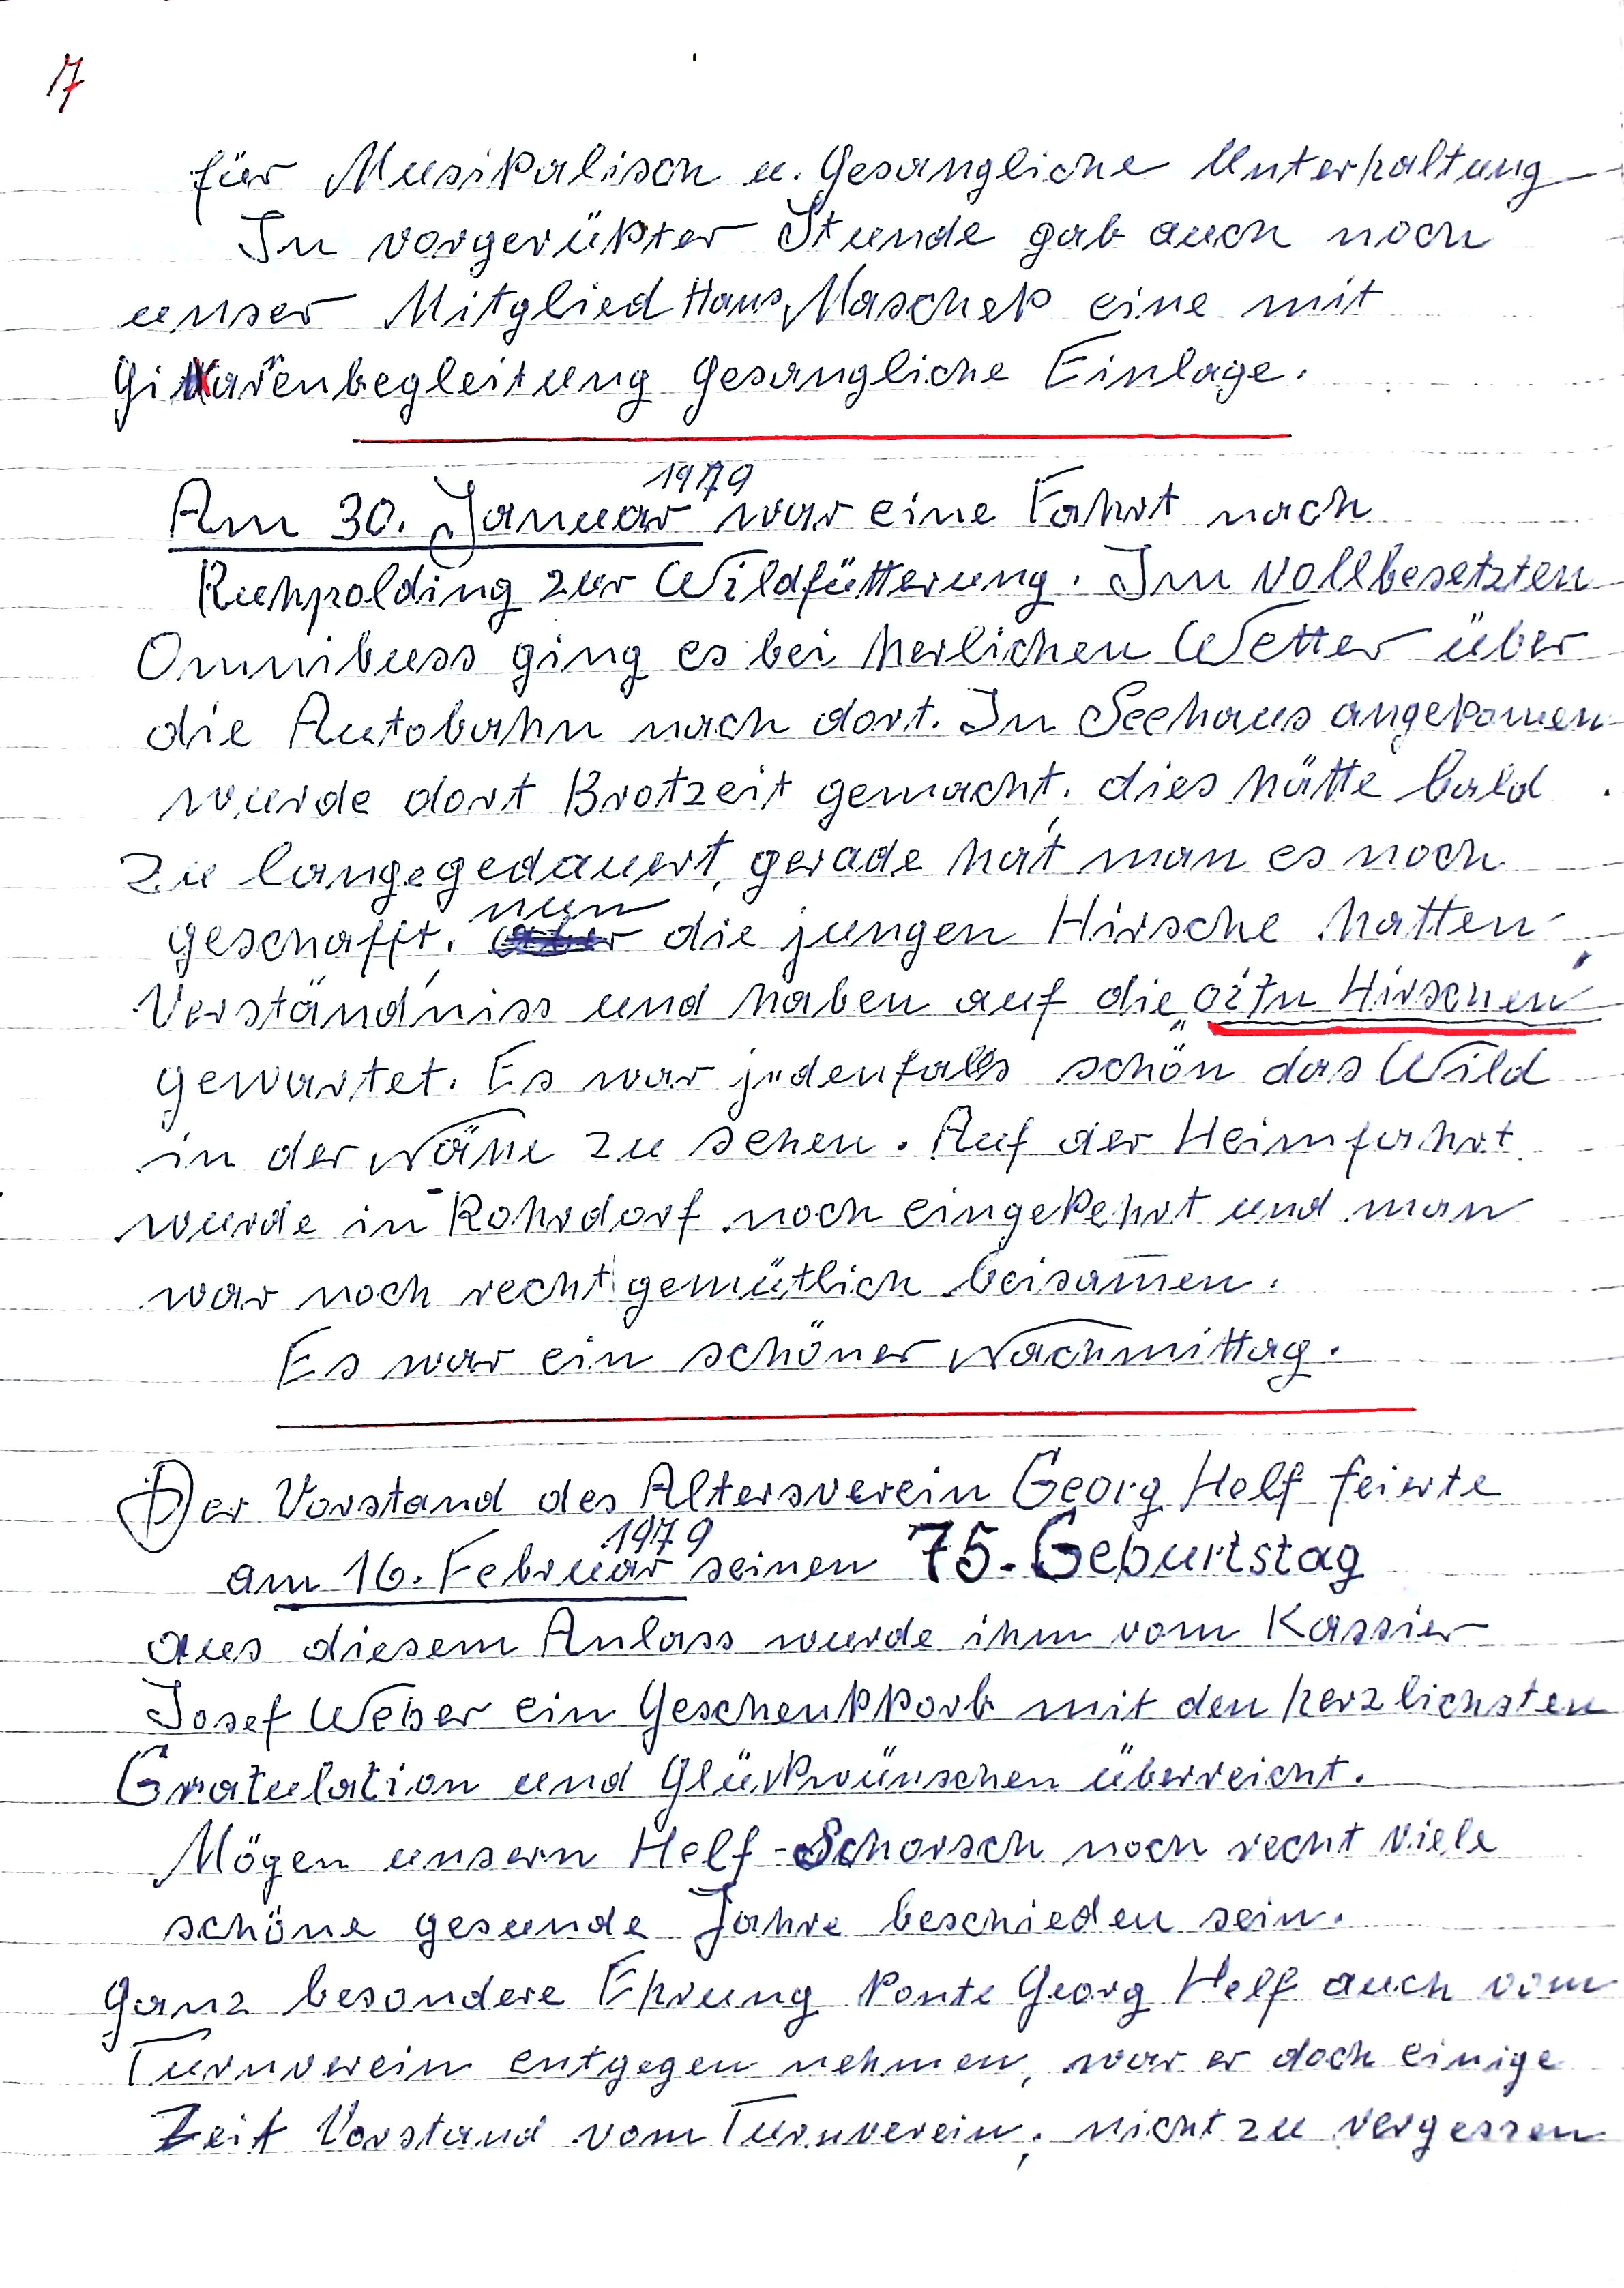 17
für Musikalisch u. Gesangliche Unterhaltung
In vorgerükter Stunde gab auch noch
unser Mitglied Hans Maschek eine mit
Gitar̄enbegleitung Gesangliche Einlage.
1979
Am 30. Januar war eine Fahrt nach
Ruhpolding zur Wildfütterung. Im vollbesetzten
Omnibuss ging es bei herlichen Wetter über
die Autobahn nach dort. In Seehaus angekomen
wurde dort Brotzeit gemacht; dies hätte bald
zu lange gedauert, gerade hat man es noch
nun
geschafft, die jungen Hirsche hatten
Verständniss und haben auf die „oitn Hirschen"
gewartet. Es war jedenfalls schön das Wild
in der Nähe zu sehen. Auf der Heimfahrt
wurde in Rohrdorf noch eingekehrt und man
war noch recht gemütlich beisam̄en.
Es war ein schöner Nachmittag.
Der Vorstand des Altersverein Georg Helf feierte
1979
am 16. Februar seinen 75. Geburtstag
aus diesem Anlass wurde ihm vom Kassier
Josef Weber ein Geschenkkorb mit den herzlichsten
Gratulation und Glükwünschen überreicht.
Mögen unsern Helf-Schorsch noch recht viele
schöne gesunde Jahre beschieden sein.
Ganz besondere Ehrung konte Georg Helf auch vom
Turnverein entgegen nehmen, war er doch einige
Zeit Vorstand vom Turnverein; nicht zu vergessen